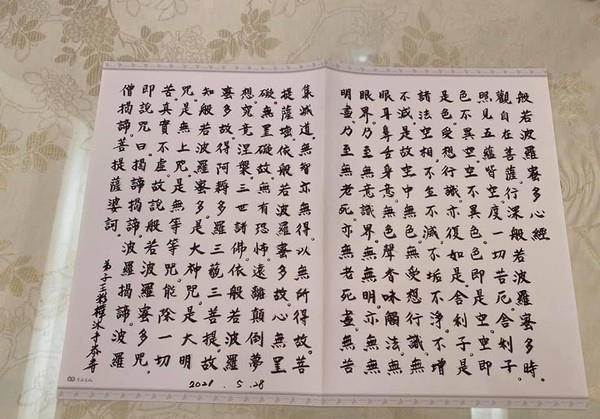 般若波羅蜜多心經
觀自在菩薩。行深般若波羅蜜多時。
照見五蘊皆空。度一切苦厄。舍利子。
色不異空。空不異色。色即是空。空即
是色。受想行識。亦復如是。舍利子。是
諸法空相。不生不滅。不垢不淨。不增
不減。是故空中無色。無受想行識。無
眼耳鼻舌身意。無色聲香味觸法。無
眼界。乃至無意識界。無無明。亦無無
明盡。乃至無老死。亦無老死盡。無苦
集滅道。無智亦無得。以無所得故。菩
提薩埵。依般若波羅蜜多故。心無罣
礙。無罣礙故。無有恐怖。遠離顛倒夢
想。究竟涅槃。三世諸佛。依般若波羅
蜜多故。得阿耨多羅三藐三菩提。故
知般若波羅蜜多。是大神咒。是大明
咒。是無上咒。是無等等咒。能除一切
苦。真實不虛。故說般若波羅蜜多咒。
即說咒曰。揭諦揭諦。波羅揭諦。波羅
僧揭諦。菩提薩婆訶。
弟子王彩樺沐手恭書
2021.5.28